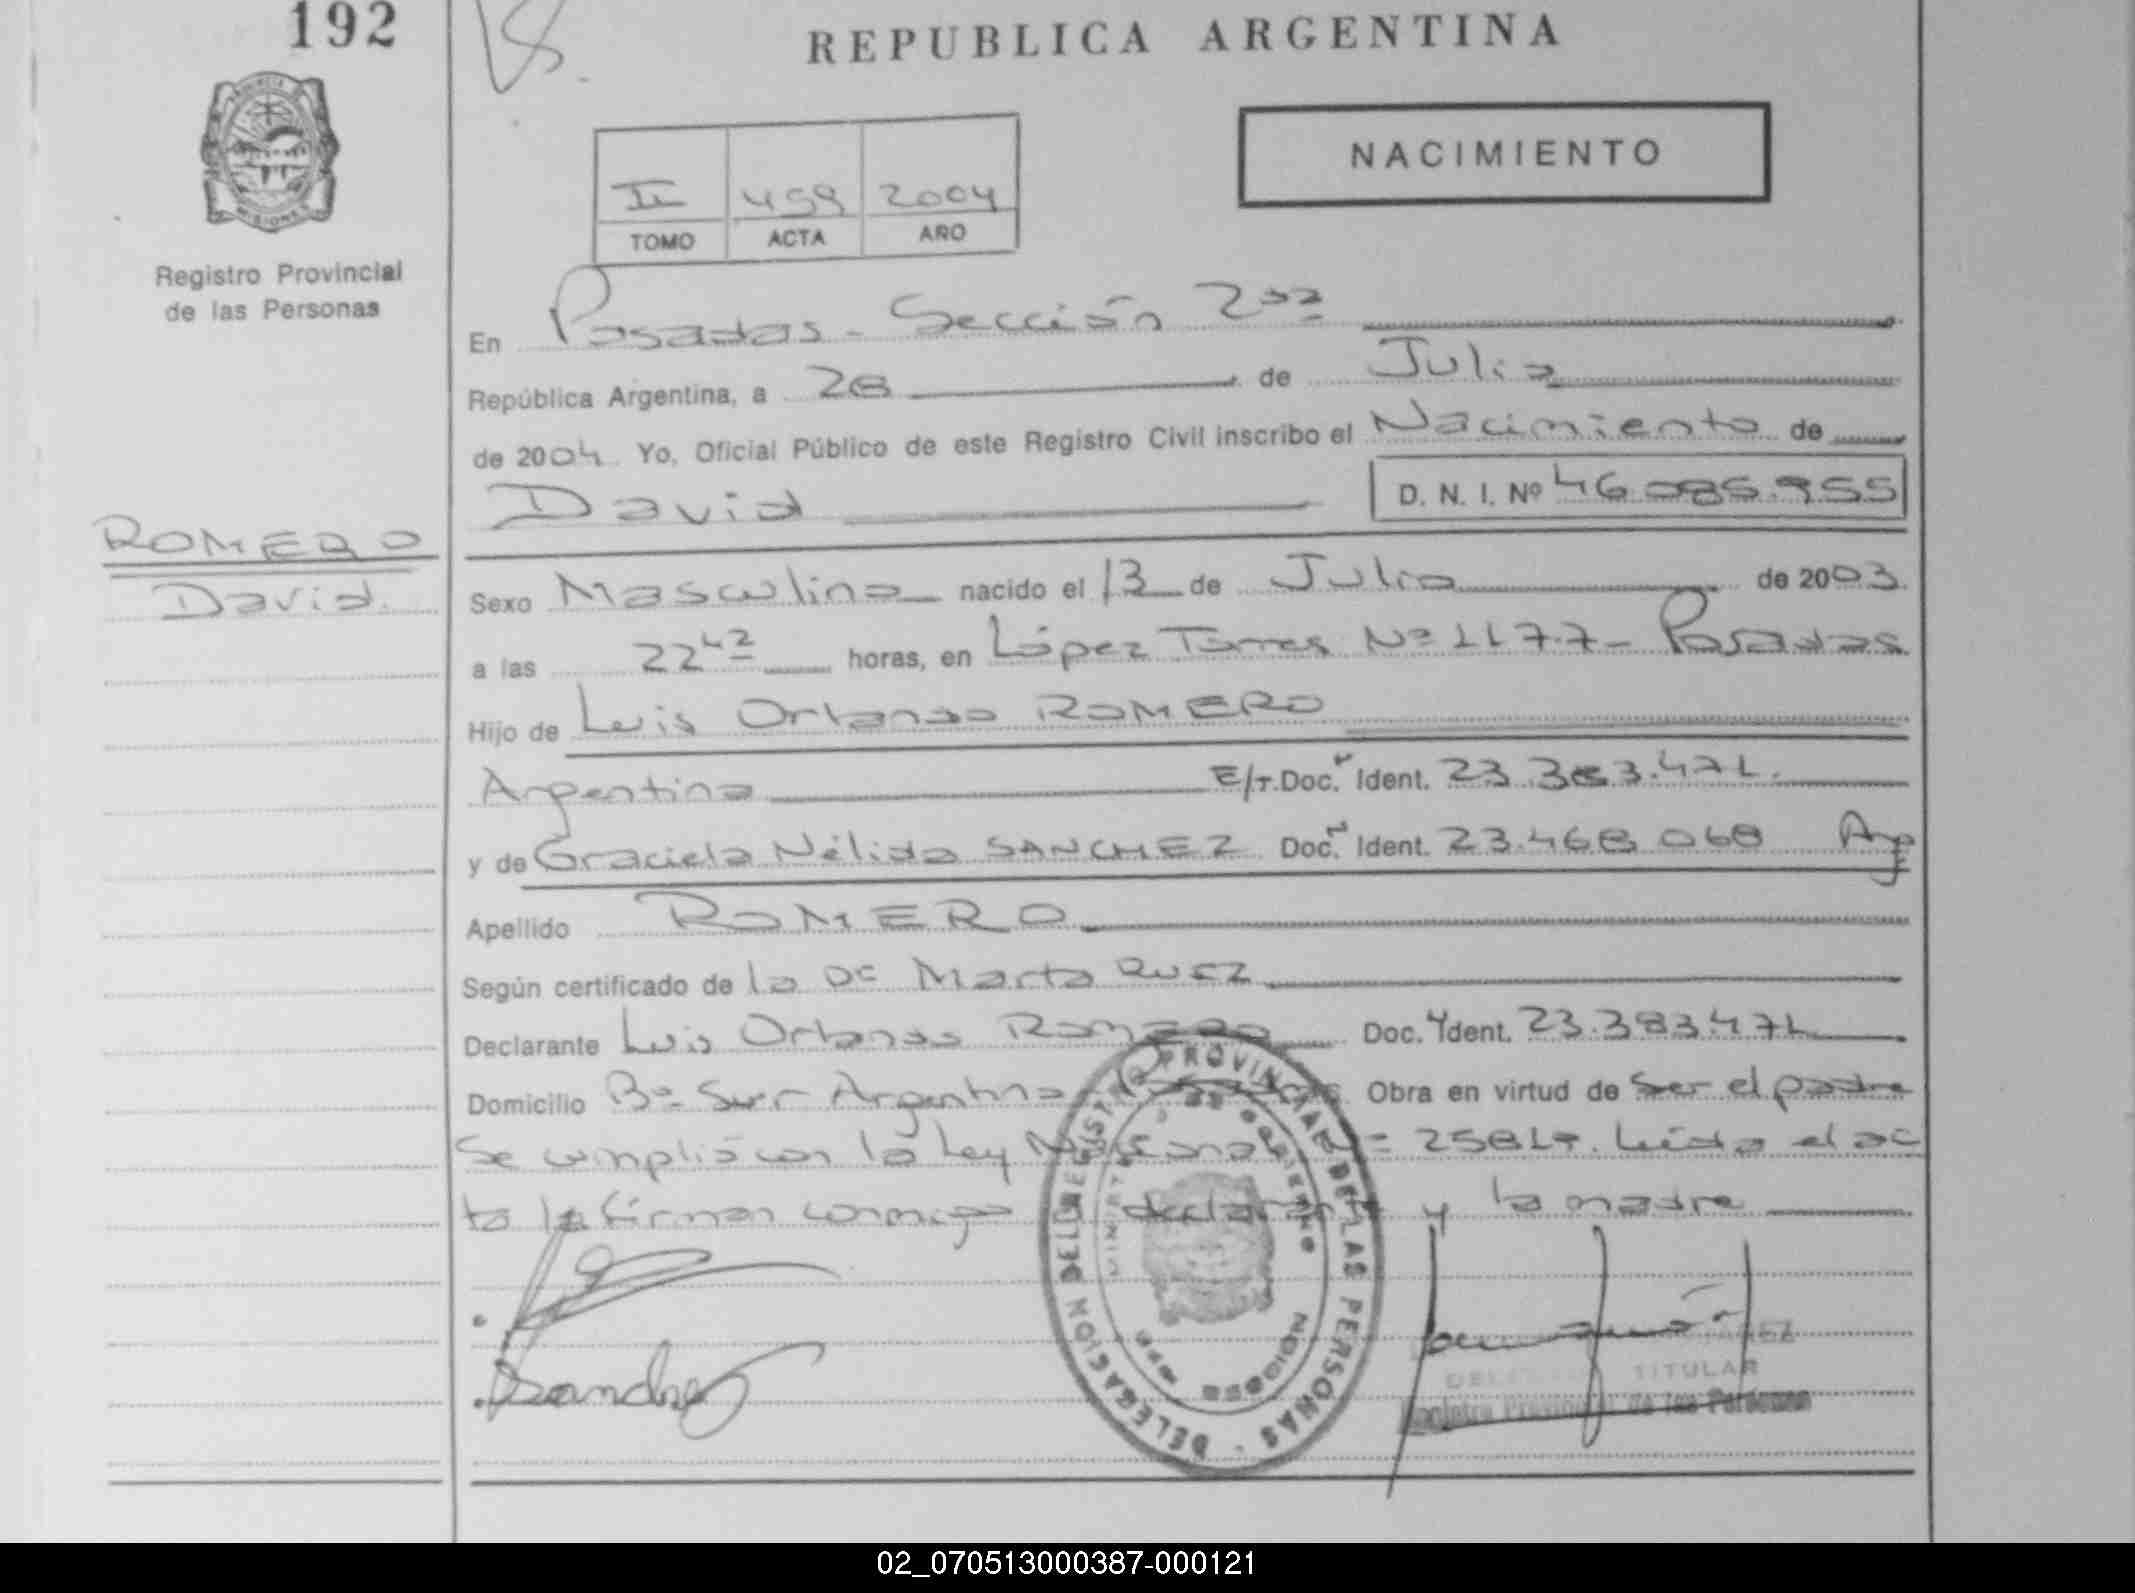 192
REPUBLICA ARGENTINA
NACIMIENTO
II 459 2004
TOMO ACTA AÑO
Registro Provincial
de las Personas
En Posadas - Sección 2da
República Argentina, a 28 de Julio
de 2004. Yo, Oficial Público de este Registro Civil inscribo el Nacimiento de
David D. N. I. Nº 46.085.955
ROMERO
David
Sexo Masculino nacido el 13 de Julio de 2003.
a las 22 42 horas, en López Torres Nº 1177 - Posadas
Hijo de Luis Orlando ROMERO
Argentino E/T. Doc. Ident. 23.383.471.
y de Graciela Nélida SANCHEZ Doc. Ident. 23.468.068 Arg
Apellido ROMERO
Según certificado de la Dc Marta
Declarante Luis Orlando Romero Doc. Ident. 23.383.471
Domicilio Bº Sur Argentino Posadas Obra en virtud de Ser el padre
Se cumplió con la Ley Nacional Nº 25819. Leída el ac
ta la firman conmigo el declarante y la madre
DELEGACION DEL REGISTRO PROVINCIAL DE LAS PERSONAS
TITULAR
Registro Provincial de las Personas
02_070513000387-000121